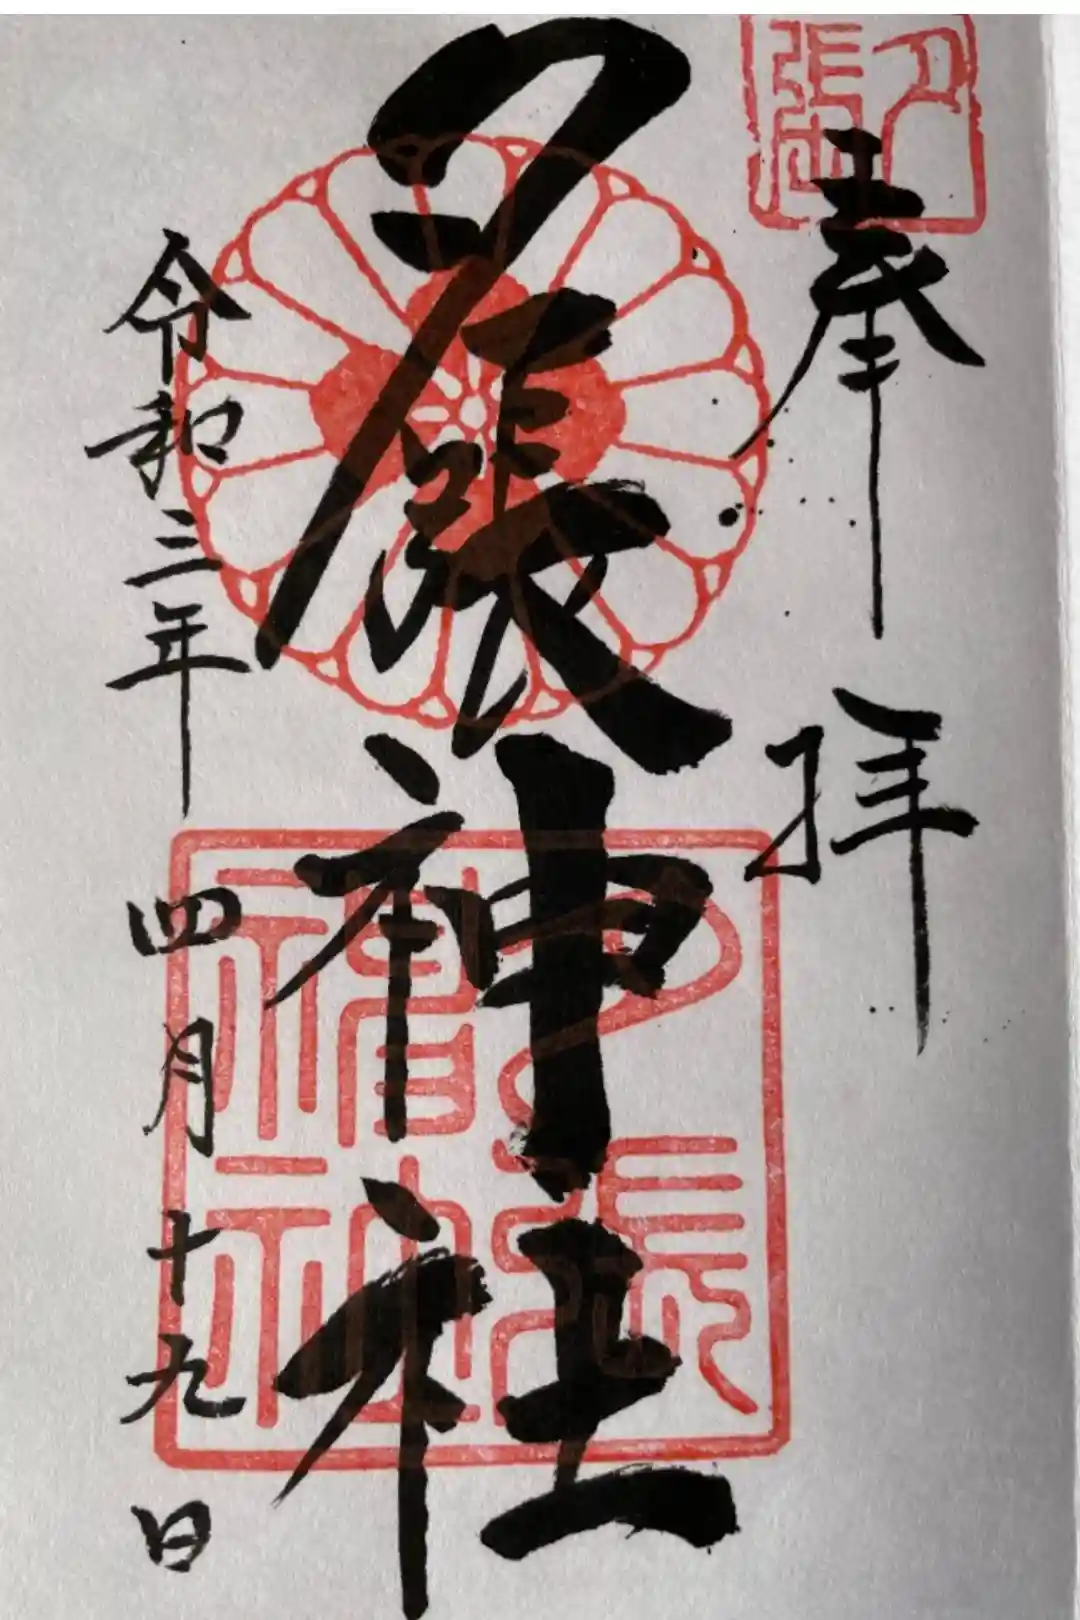 奉拝
夕張神社
令和三年四月十九日
夕張
神社